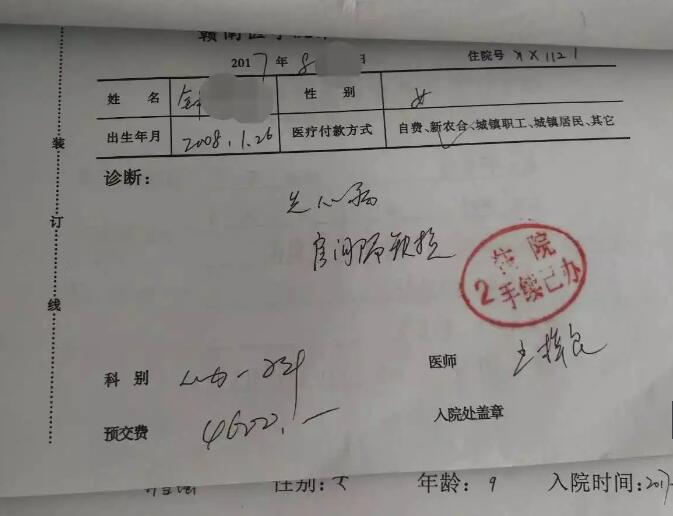 2017年8 日 住院号 XX1121
姓 名 性 别 女
出生年月 2008.1.26 医疗付款方式 自费、新农合、城镇职工、城镇居民、其它
诊断:
先心病
房间隔缺损
住院
2手续已办
科 别 医师
预交费 4600.一 入院处盖章
装
订
线
性别: 女 年龄: 9 入院时间: 2017-